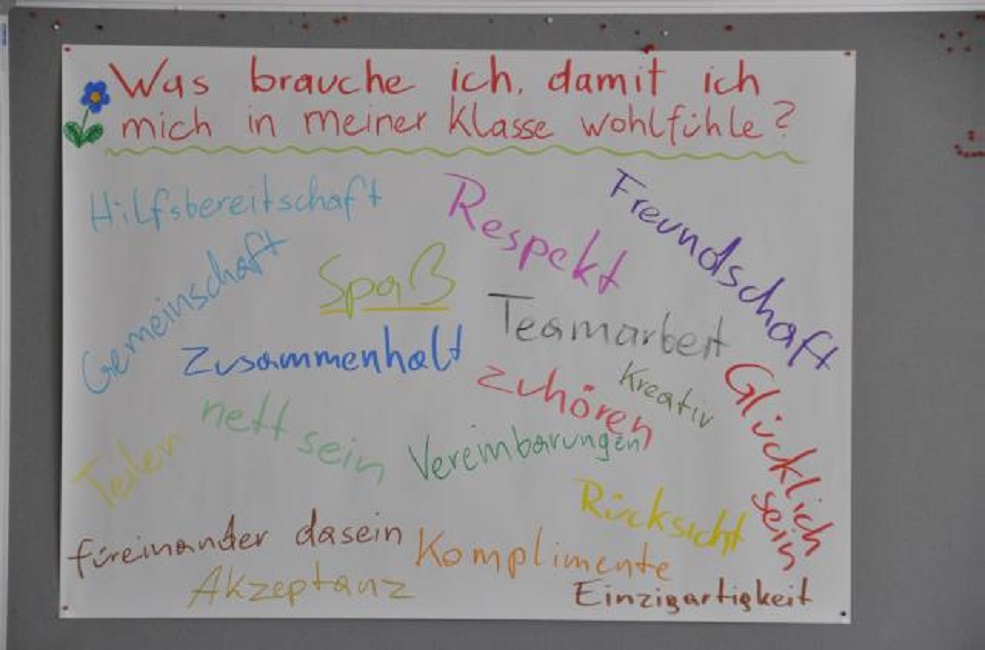 Was brauche ich, damit ich
mich in meiner Klasse wohlfühle?
Hilfsbereitschaft
Respekt
Freundschaft
Gemeinschaft
Spaß
Teamarbeit
Zusammenhalt
zuhören
Kreativ
Glücklich
sein
nett sein
Vereinbarungen
Teilen
Rücksicht
füreinander dasein
Komplimente
Akzeptanz
Einzigartigkeit